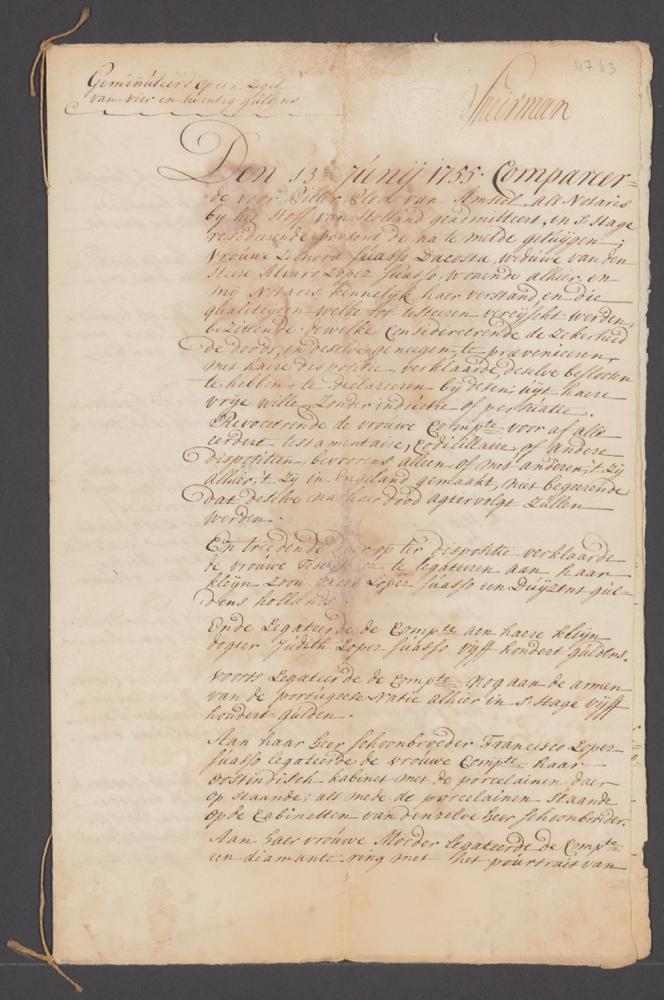 4763
Geminuteerd op een Zegel
van vier en twintig guldens
Den 13 Junij 1755. Compareer=
=de voor Cleel van Amstel, als Notaris
bij het Hoff van Holland geadmitteert, in 's Hage
resideerende present de na te melde getuijgen;
Vrouwe Lionora Suasso Dacosta, weduwe van den
Heere Alvaro Lopez Suasso, wonende alhier, en
mij Notaris kennelijk haer verstand, en die
qualiteijten welke tot testeeren vereijscht werden,
bezittende. dewelke Considereerende de zekerheid
de doods, en deselve genegen te prævenieeren,
met haere dispositie, verklaarde, deselve beslooten
te hebben, te declareeren bij desen, uijt haere
vrije wille, zonder inductie of persuatie.
Revoceerende de vrouwe Compte voor af alle
eerdere testamentaire, Codicillaire, of andere
dispositien, bevoorens alleen of met anderen, 't zij
alhier, 't zij in Engeland gemaakt, niet begeerende
dat deselve na haer dood agtervolgt zullen
werden.
En treedende daer op ter dispositie verklaarde
de vrouwe te legateeren aan haar
kleijn Zoon Jacob Lopez Suasso een Duijzent gul=
=dens hollands.
Ende Legateerde de Compte aen haere kleijn
dogter Judith Lopez Suasso vijff hondert guldens.
voorts Legateerde de Compte nog aan de armen
van de portugeese Natie alhier in 's Hage vijff
hondert gulden.
Aan haar heer schoonbroeder Francisco Lopez
Suasso legateerde de vrouwe Compte haar
oostindisch kabinet met de porcelainen daer
op staande; als mede de porcelainen staande
op de Cabinetten van denselve heer schoonbroeder.
Aan haer vrouwe Moeder legateerde de Compte
een diamante ring met het pourtrait van